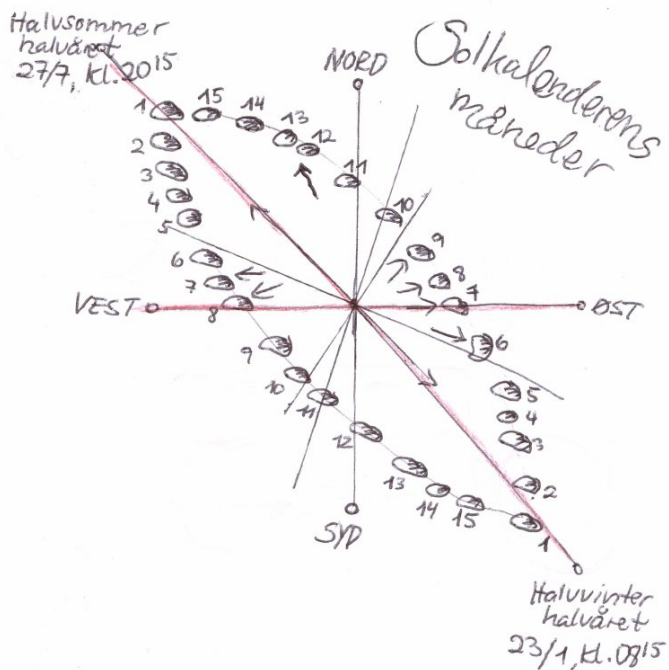 Halvsommer
halvåret
27/7, kl. 20¹⁵
NORD
Solkalenderens
måneder
1 15 14 13 12 11 10 9 8 7 6 5 4 3 2
2 3 4 5 6 7 8 9 10 11 12 13 14 15 1
VEST
ØST
SYD
Halvvinter
halvåret
23/1, kl. 08¹⁵